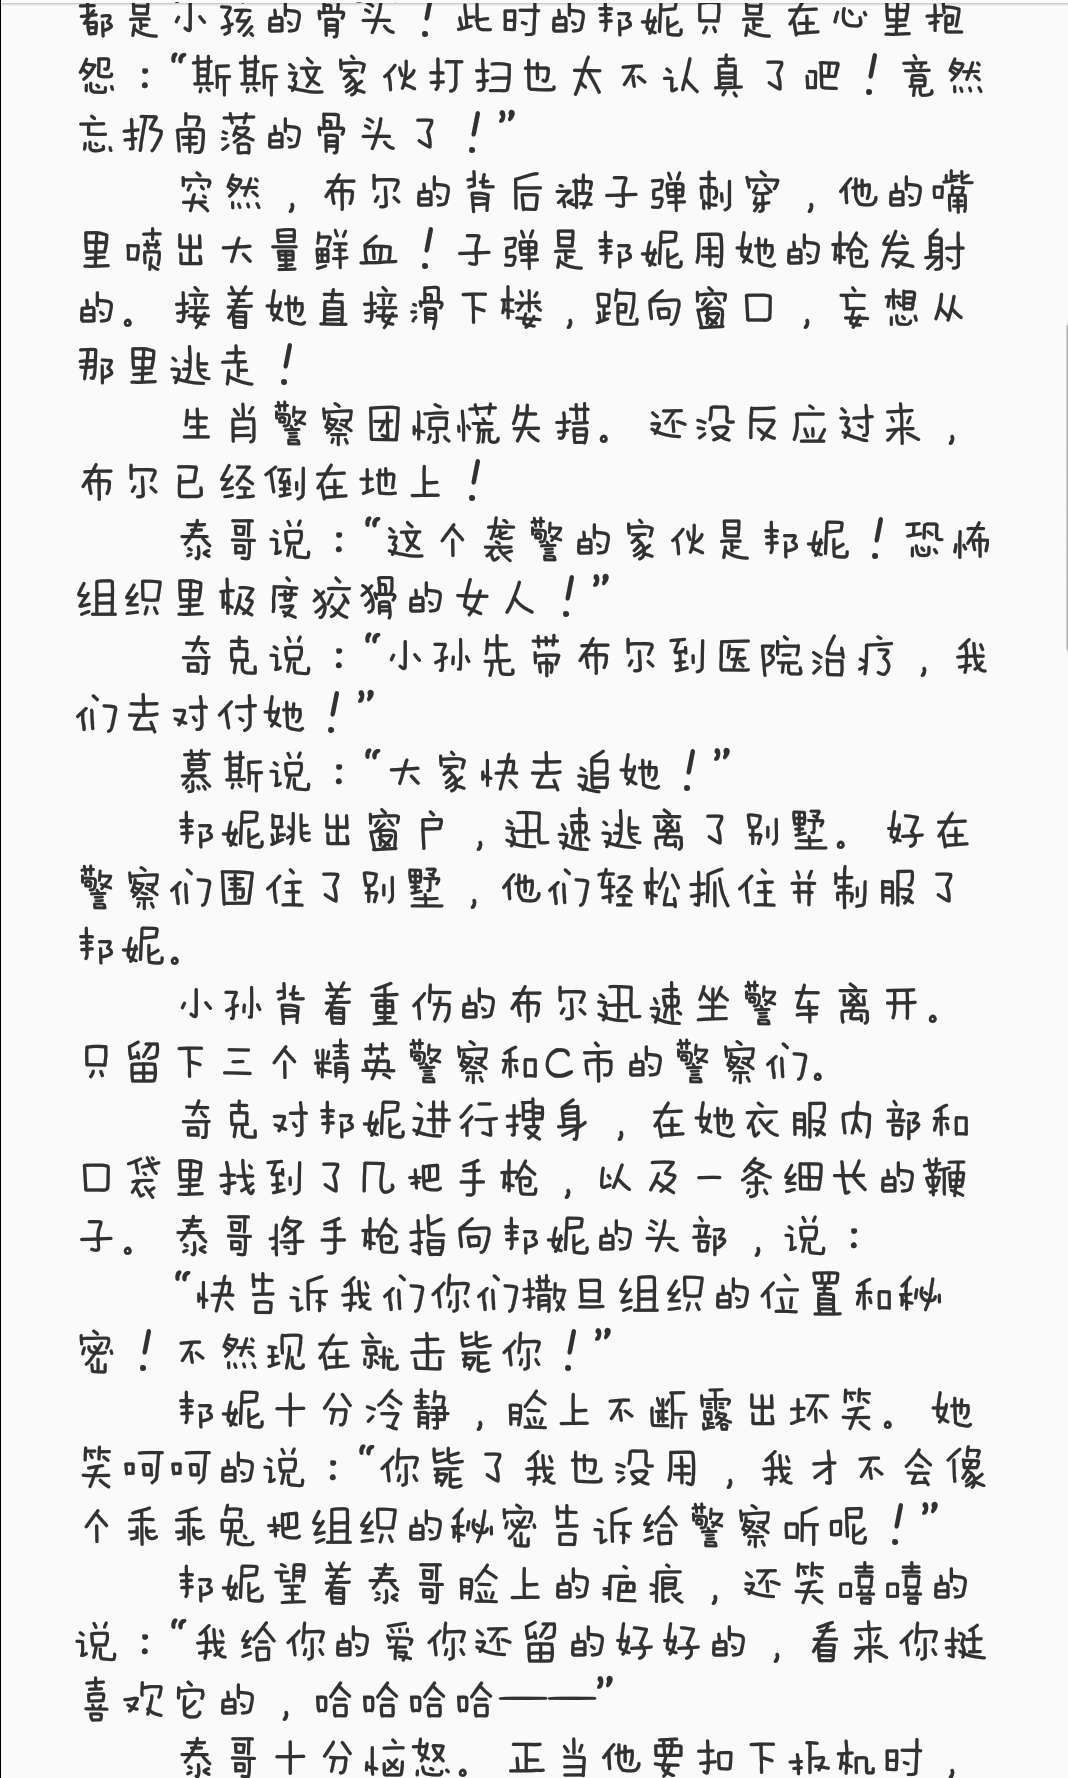 都是小孩的骨头！此时的邦妮只是在心里抱
怨：“斯斯这家伙打扫也太不认真了吧！竟然
忘扔角落的骨头了！”
突然，布尔的背后被子弹刺穿，他的嘴
里喷出大量鲜血！子弹是邦妮用她的枪发射
的。接着她直接滑下楼，跑向窗口，妄想从
那里逃走！
生肖警察团惊慌失措。还没反应过来，
布尔已经倒在地上！
泰哥说：“这个袭警的家伙是邦妮！恐怖
组织里极度狡猾的女人！”
奇克说：“小孙先带布尔到医院治疗，我
们去对付她！”
慕斯说：“大家快去追她！”
邦妮跳出窗户，迅速逃离了别墅。好在
警察们围住了别墅，他们轻松抓住并制服了
邦妮。
小孙背着重伤的布尔迅速坐警车离开。
只留下三个精英警察和C市的警察们。
奇克对邦妮进行搜身，在她衣服内部和
口袋里找到了几把手枪，以及一条细长的鞭
子。泰哥将手枪指向邦妮的头部，说：
“快告诉我们你们撒旦组织的位置和秘
密！不然现在就击毙你！”
邦妮十分冷静，脸上不断露出坏笑。她
笑呵呵的说：“你毙了我也没用，我才不会像
个乖乖兔把组织的秘密告诉给警察听呢！”
邦妮望着泰哥脸上的疤痕，还笑嘻嘻的
说：“我给你的爱你还留的好好的，看来你挺
喜欢它的，哈哈哈哈——”
泰哥十分恼怒。正当他要扣下扳机时，